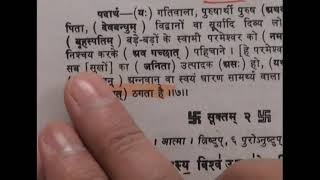 पदार्थ—(यः) गतिवाला, पुरुषार्थी पुरुष (
पिता, (देवबन्धुम्) विद्वानों वा सूर्यादि दिव्य लो
(बृहस्पतिम्) बड़े-बड़ों के स्वामी परमेश्वर को (
निश्चय करके (अव गच्छात्) पहिचाने। [हे परमे
सब [सुखों] का (जनिता) उत्पादक (असः) हो, (
अन्नवान् वा स्वयं धारण सामर्थ्य वाला
ठगता है॥७॥
卐 सूक्तम् २ 卐
आत्मा। त्रिष्टुप्, ६ पुरोऽनुष्टुप्
विश्वं